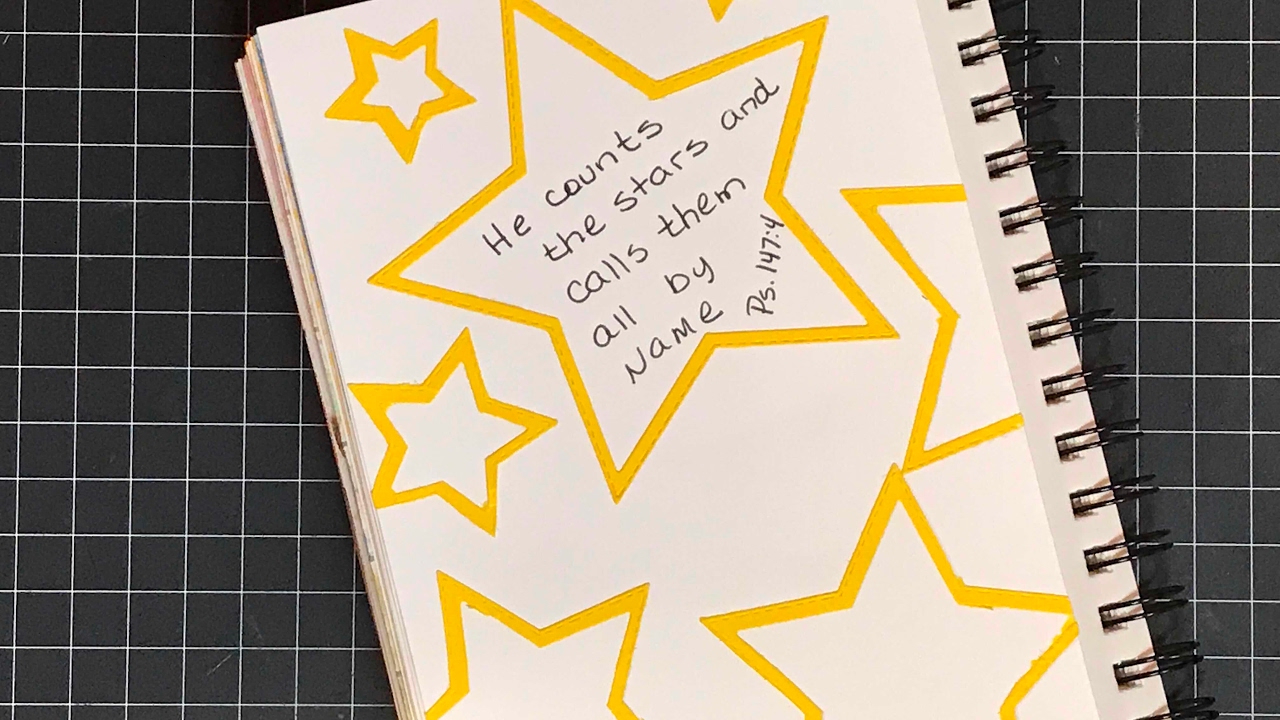 He counts
the stars and
calls them
all by
Name
Ps. 147:4